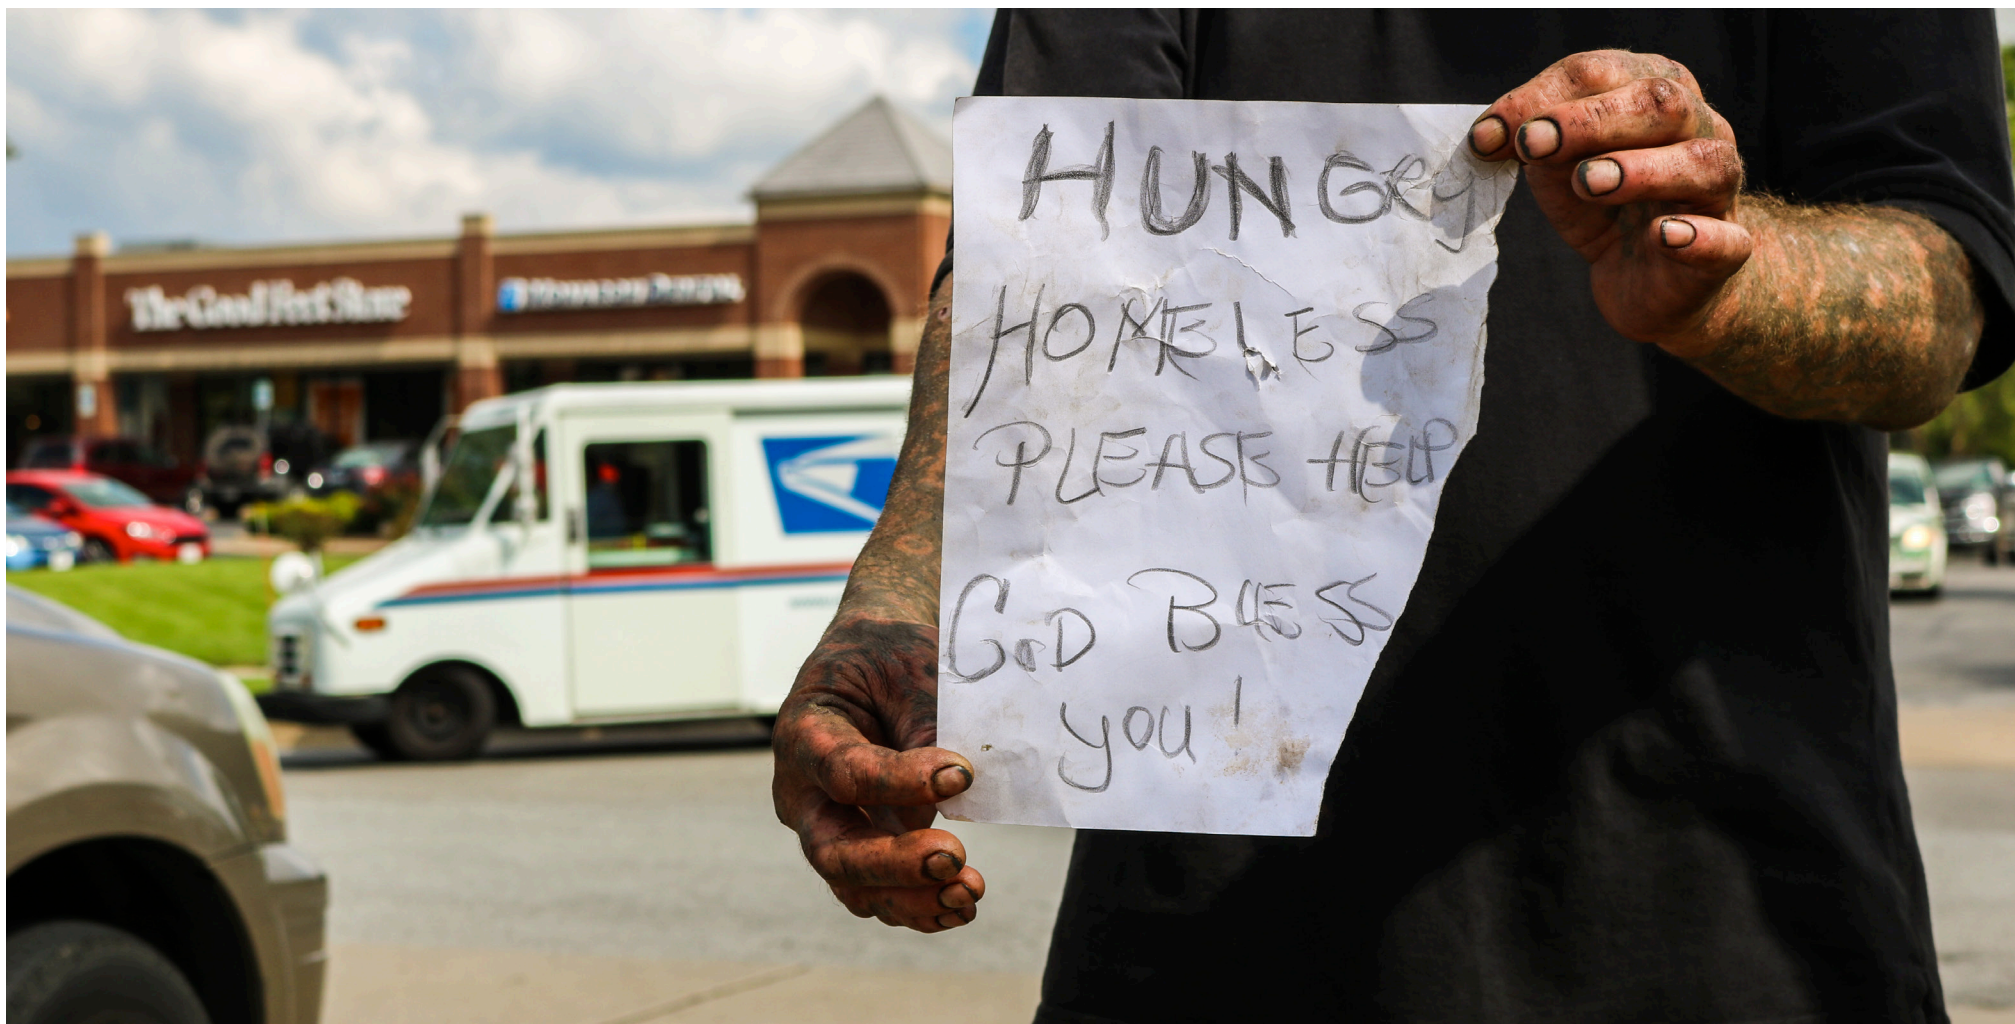 The Good Feet Store
HUNGRy
HOMELESS
PLEASE HELP
GOD BLESS
you!